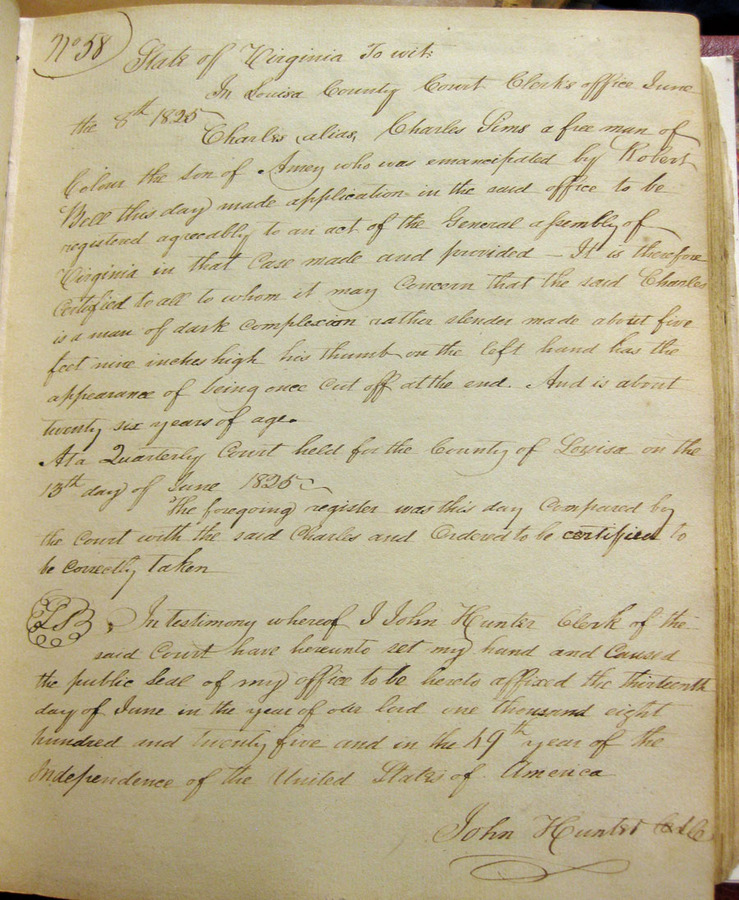 No 58
State of Virginia To wit:
In Louisa County Court Clerk's office June
the 8th 1825
Charles alias, Charles Sims a free man of
Colour the son of Amey who was emancipated by Robert
Bell this day made application in the said office to be
registered agreeably to an act of the General assembly of
Virginia in that Case made and provided – It is therefore
Certified to all to whom it may Concern that the said Charles
is a man of dark complexion rather slender made about five
feet nine inches high his thumb on the left hand has the
appearance of being once cut off at the end. And is about
twenty six years of age.
At a Quarterly Court held for the County of Louisa on the
13th day of June 1825
The foregoing register was this day Compared by
the Court with the said Charles and Ordered to be certified to
be correctly taken
In testimony whereof I John Hunter Clerk of the
said Court have hereunto set my hand and Caused
the public Seal of my office to be hereto affixed the thirteenth
day of June in the year of our lord one thousand eight
hundred and twenty five and in the 49th year of the
Independence of the United States of America
John Hunter